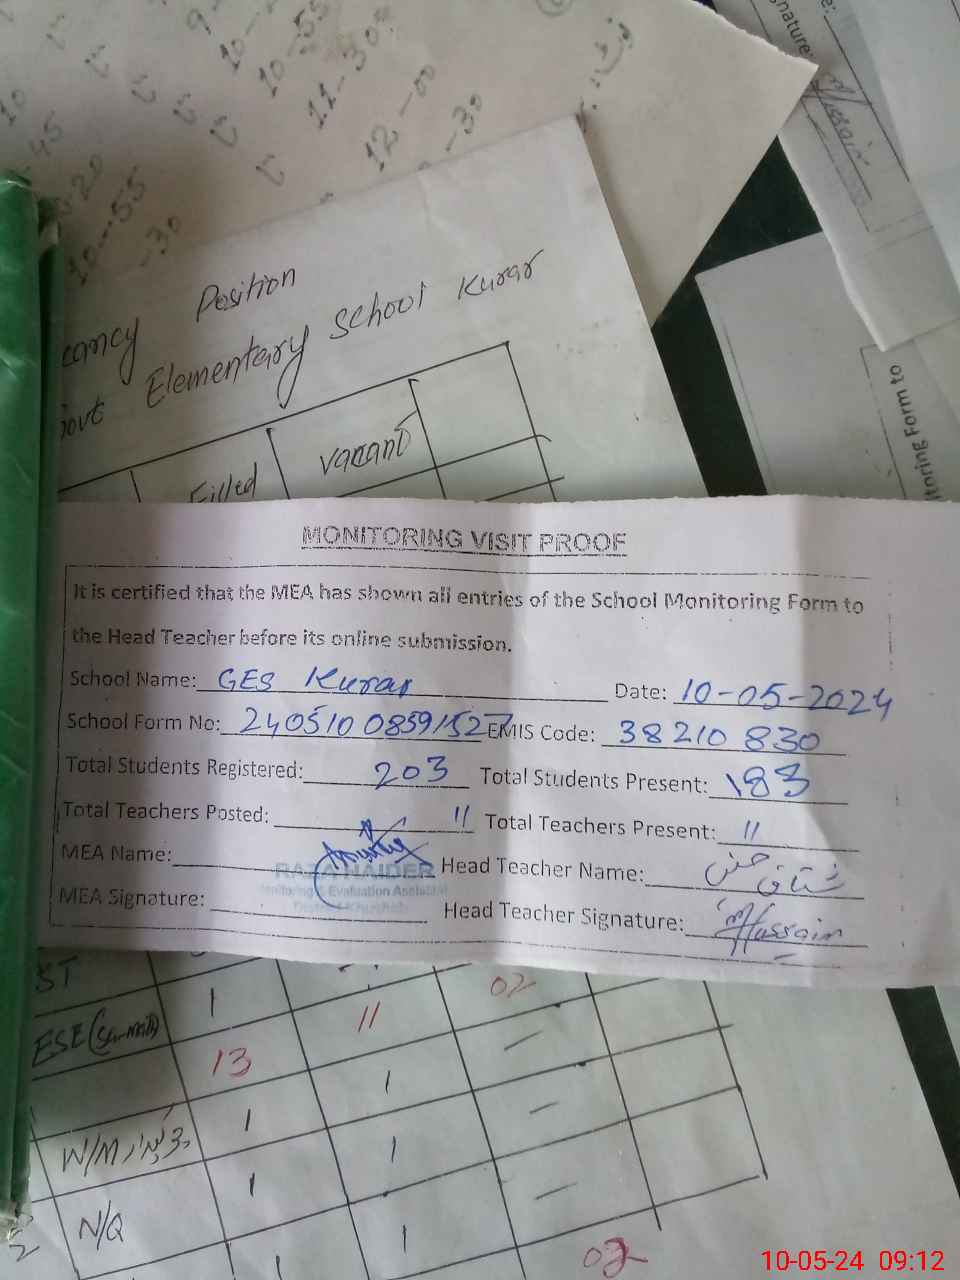 10-55
11-30
12-00
-30
10
45
20
10-55
-30
nature:
Hussain
Position
Govt Elementary School Kurar
Filled
vacant
toring Form to
MONITORING VISIT PROOF
It is certified that the MEA has shown all entries of the School Monitoring Form to
the Head Teacher before its online submission.
School Name: GES Kurar Date: 10-05-2024
School Form No: 240510 08591527 EMIS Code: 38210 830
Total Students Registered: 203 Total Students Present: 183
Total Teachers Posted: 11 Total Teachers Present: 11
MEA Name: RAZA HAIDER Head Teacher Name: مشتاق حسین
Monitoring & Evaluation Assistant
District Khushab
MEA Signature: Head Teacher Signature: M Hussain
ST
1
02
ESE
13 11
W/M 1 1
N/Q 1 1
1 1 02
10-05-24 09:12